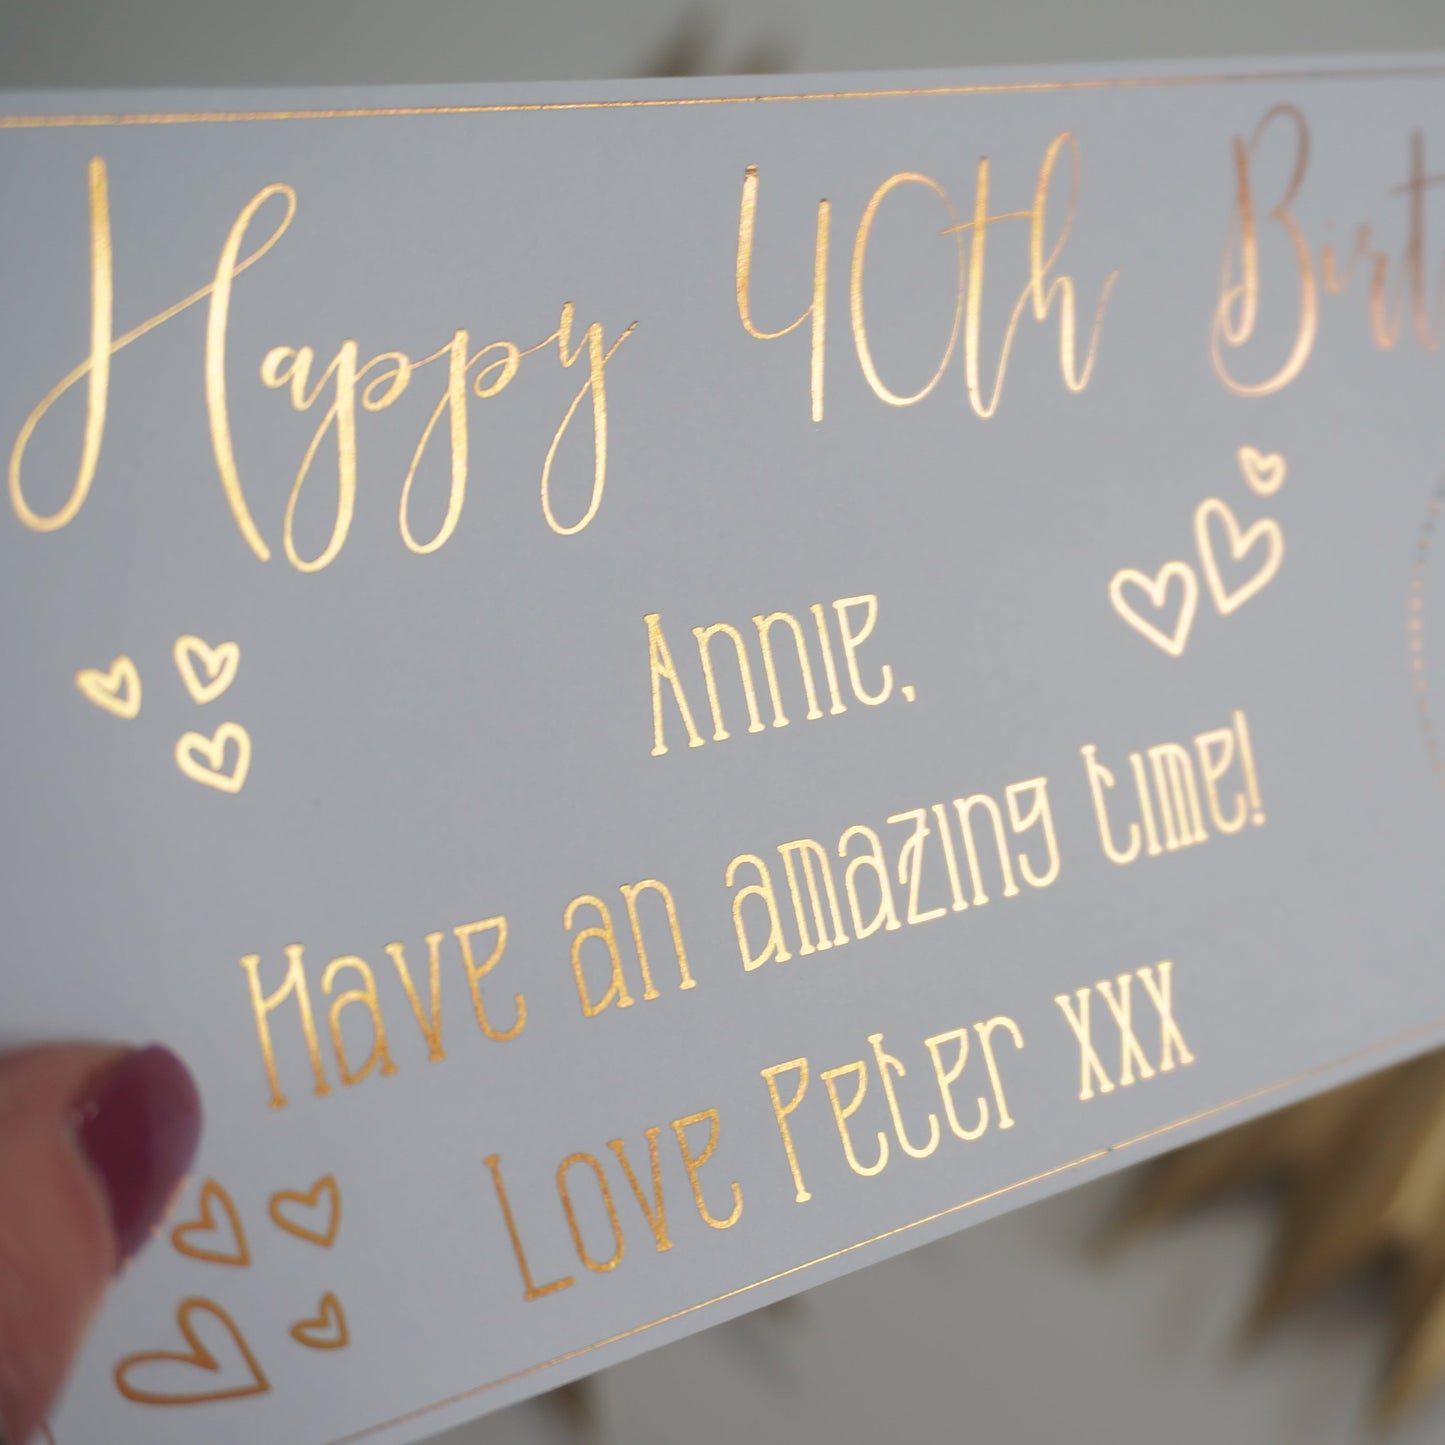 Happy 40th Birt
Annie,
Have an amazing time!
Love Peter xxx